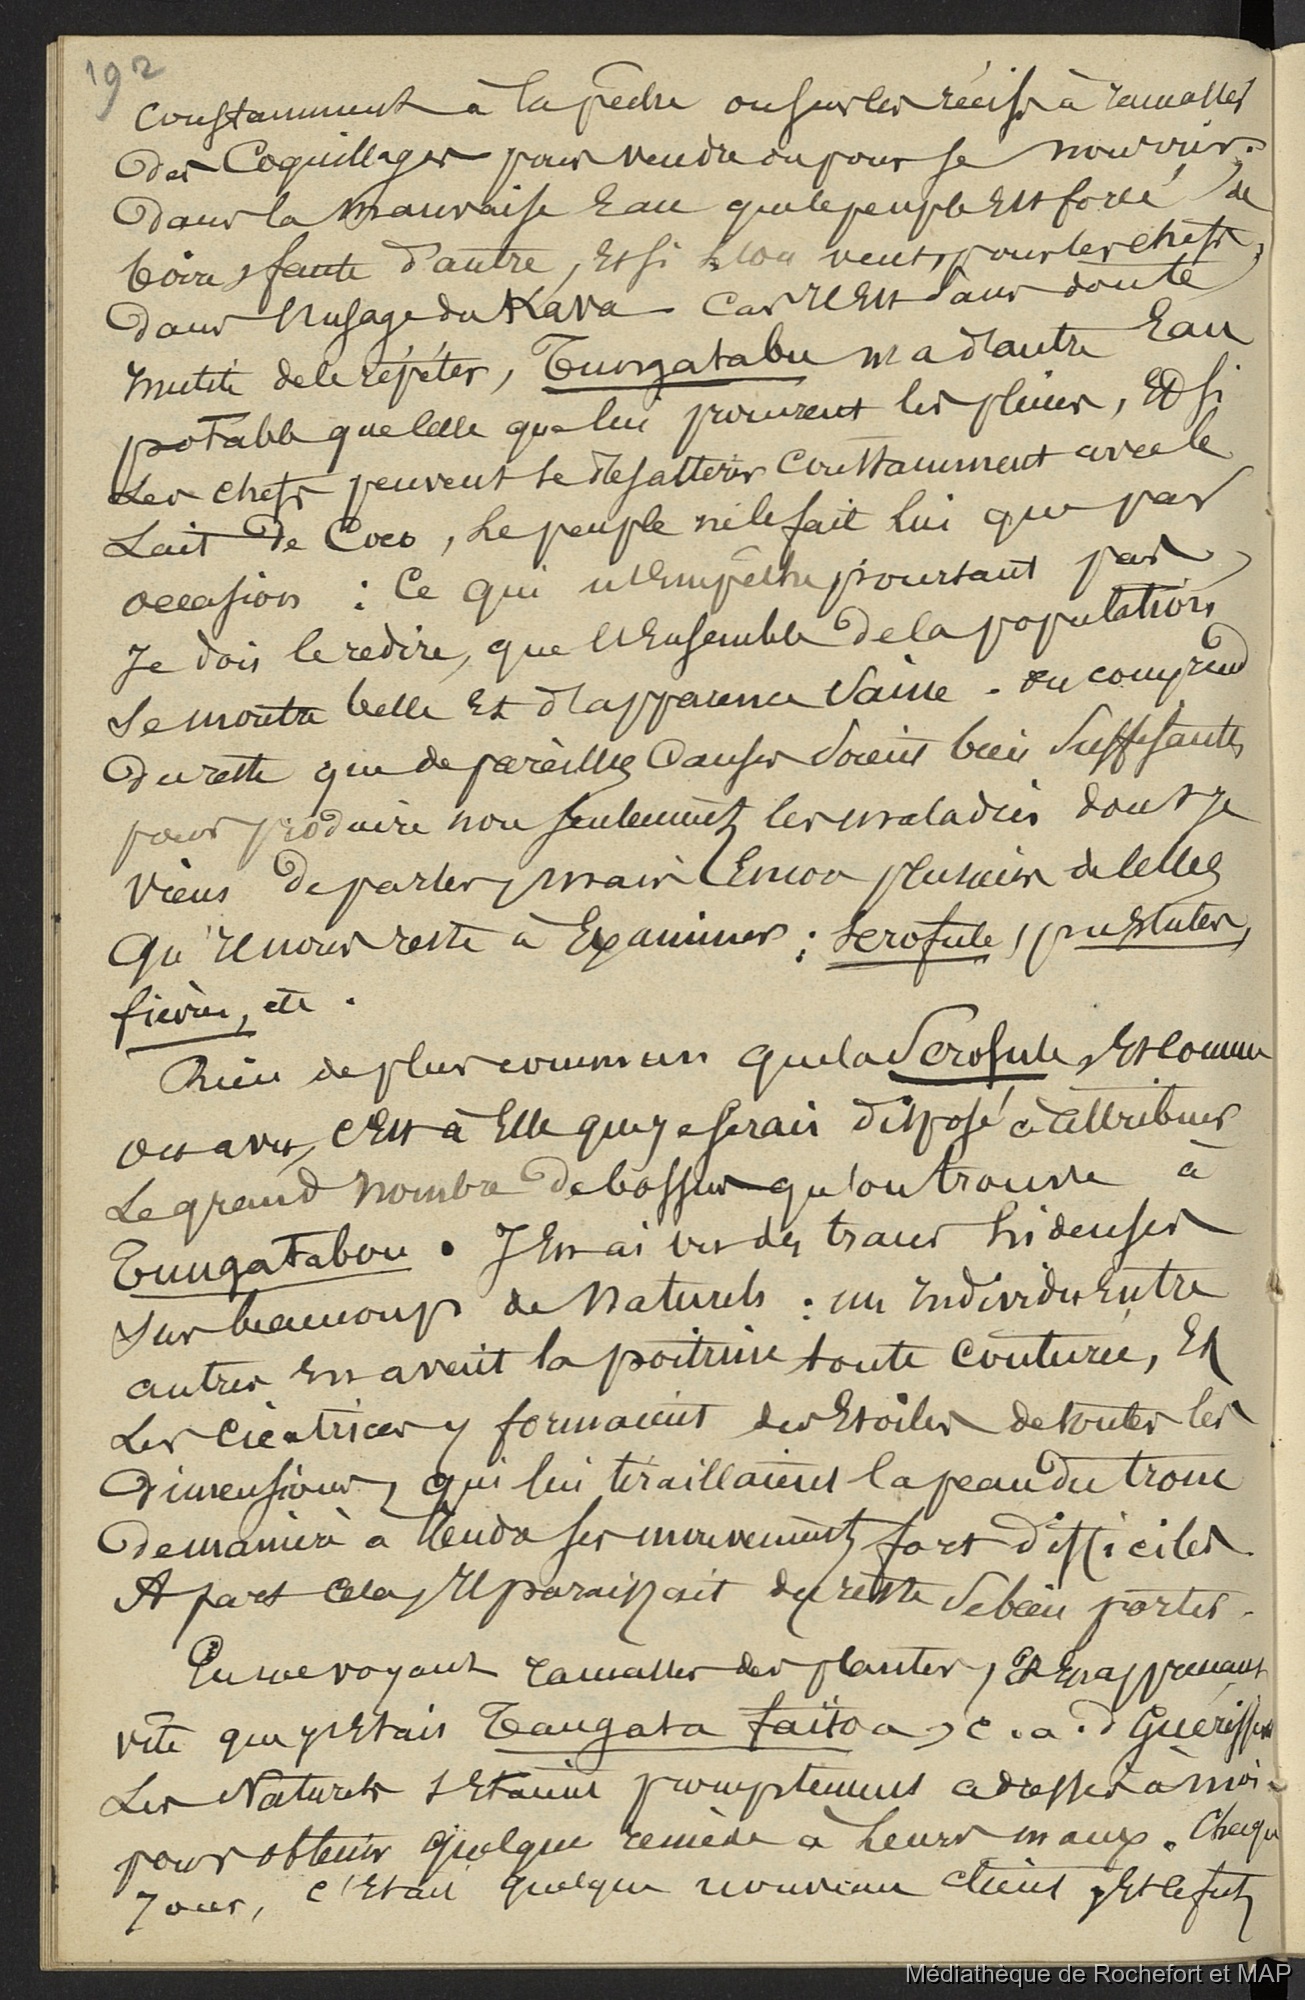 192
constamment à la pêche ou sur les récifs à ramasser
des Coquillages pour vendre ou pour se nourrir.
dans la mauvaise Eau que le peuple Est forcé de
boire, faute d'autre, Et si l'on veut, pour les chefs,
dans l'usage du Kava. Car Il Est sans doute
inutile de le répéter, Tungatabu n'a d'autre Eau
potable que celle que lui procurent les pluies, Et si
Les chefs peuvent se désaltérer constamment avec le
Lait de Coco, Le peuple ne le fait lui que par
occasion : Ce qui n'Empêche pourtant pas,
Je dois le redire, que l'Ensemble de la population
Se montre belle Et d'apparence Saine. on comprend
Du reste que de pareilles Causes Soient bien Suffisantes
pour produire non seulement les maladies dont je
viens de parler, mais Encor plusieurs de celles
Qu'Il nous reste à Examiner : Scrofule, pustules,
fièvres, etc.
Rien de plus commun que la Scrofule, Et comme
on a vu, c'Est à Elle que je serais disposé à attribuer
Le grand nombre de bossus qu'on trouve à
TungaTabou. J'En ai vu des traces hideuses
Sur beaucoup de Naturels : un individu Entre
autres En avait la poitrine toute couturée, Et
Les Cicatrices y formaient des Etoiles de toutes les
Dimensions, qui lui tiraillaient la peau du tronc
De manière à rendre ses mouvements fort difficiles.
A part cela, Il paraissait du reste Se bien porter.
En me voyant ramasser des plantes, Et En apprenant
vite que j'Etais Tangata faïtoa, c.a.d Guérisseur
Les Naturels s'Etaient promptement adressés à moi
pour obtenir quelque remède à Leurs maux. Chaque
Jour, c'Etait quelque nouveau client, Et ce fut
Médiathèque de Rochefort et MAP